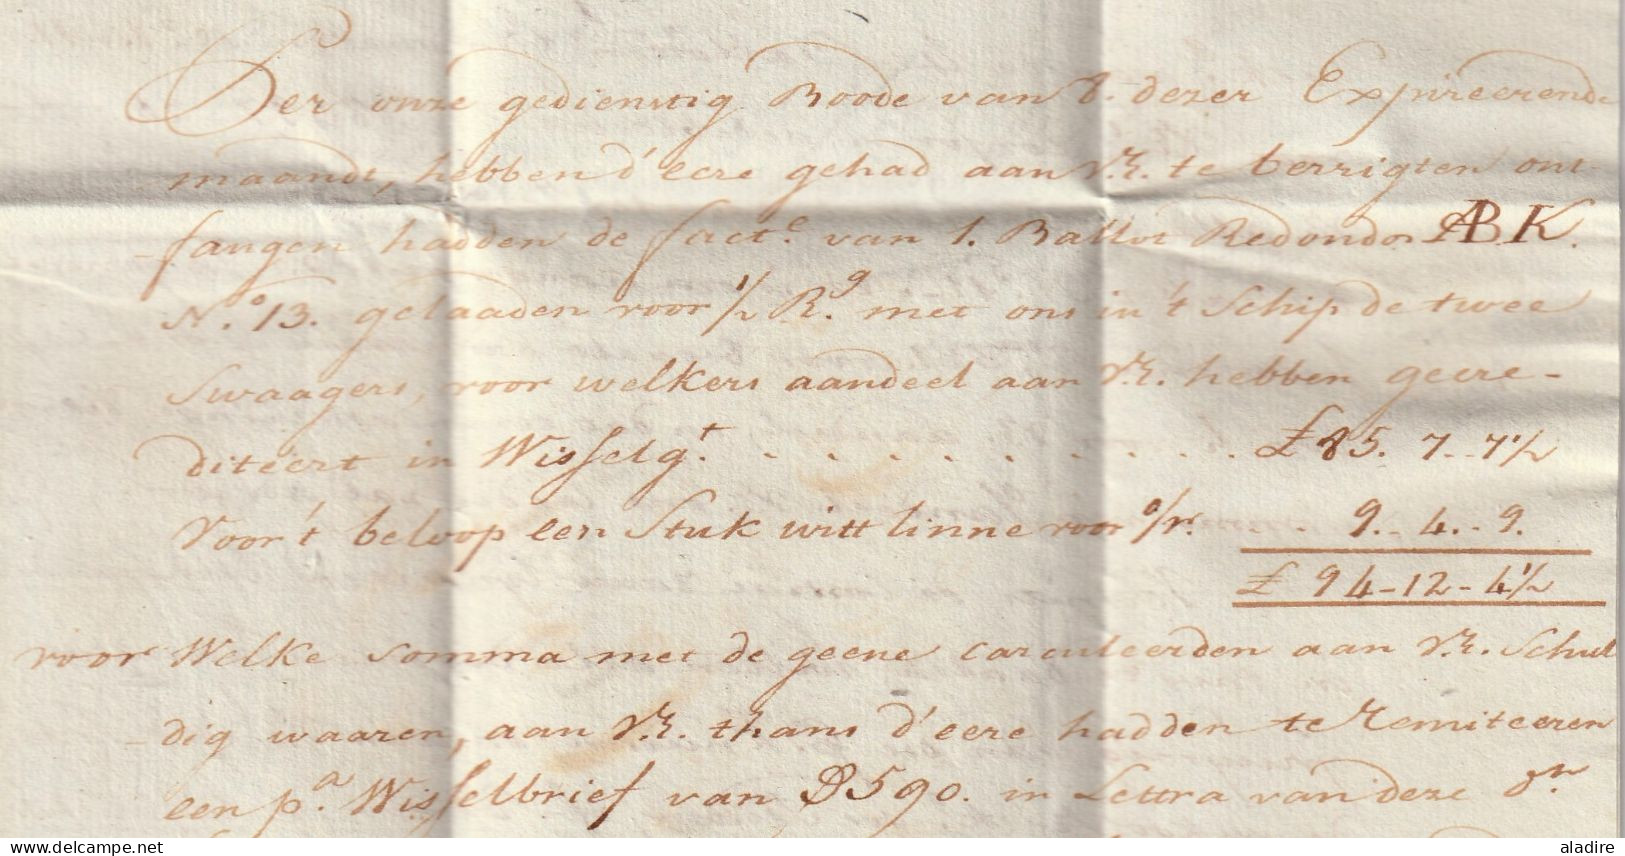 Per onze gedienstig Boode van 8. dezer Expireerende
maandt, hebben d'eere gehad aan VE. te berrigten ont-
-fangen hadden de fact.e van 1. Ballot Redondos ABK.
N.o 13. gelaaden voor 1/2 R.g met ons in 't Schip de twee
Swaagers, voor welkers aandeel aan VE. hebben geere-
diteert in Wisselg.t . . . . . . . . . . £ 85. 7.. 7 1/2
Voor 't beloop een Stuk witt linne voor o/r. . . 9.. 4.. 9.
£ 94-12-4 1/2
voor Welke somma met de geene aan VE. Schul
-dig waaren, aan VE. thans d'eere hadden te Remiteeren
een p.a Wisselbrief van 590. in Lettra van deze
delcampe.net
aladire